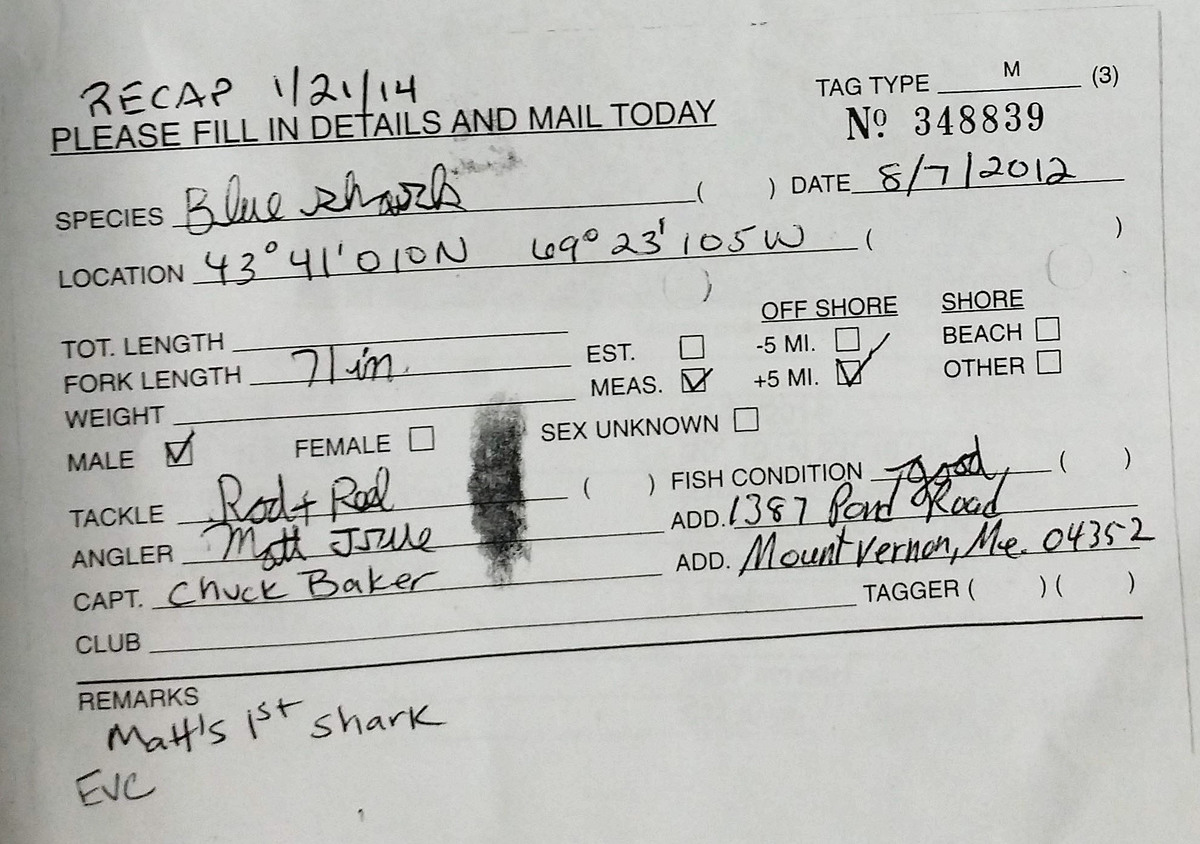 RECAP 1/21/14
TAG TYPE M (3)
PLEASE FILL IN DETAILS AND MAIL TODAY
Nº 348839
SPECIES Blue shark ( ) DATE 8/7/2012
LOCATION 43° 41' 010N 69° 23' 105W ( )
OFF SHORE SHORE
TOT. LENGTH EST. -5 MI. BEACH
FORK LENGTH 71 in. MEAS. +5 MI. OTHER
WEIGHT
MALE FEMALE SEX UNKNOWN
TACKLE Rod + Reel ( ) FISH CONDITION good ( )
ANGLER Matt ADD. 1387 Pond Road
CAPT. Chuck Baker ADD. Mount Vernon, Me. 04352
CLUB TAGGER ( ) ( )
REMARKS
Matt's 1st shark
EVC